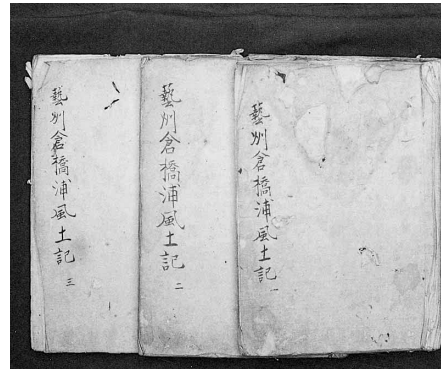 藝州倉橋浦風土記 一
藝州倉橋浦風土記 二
藝州倉橋浦風土記 三